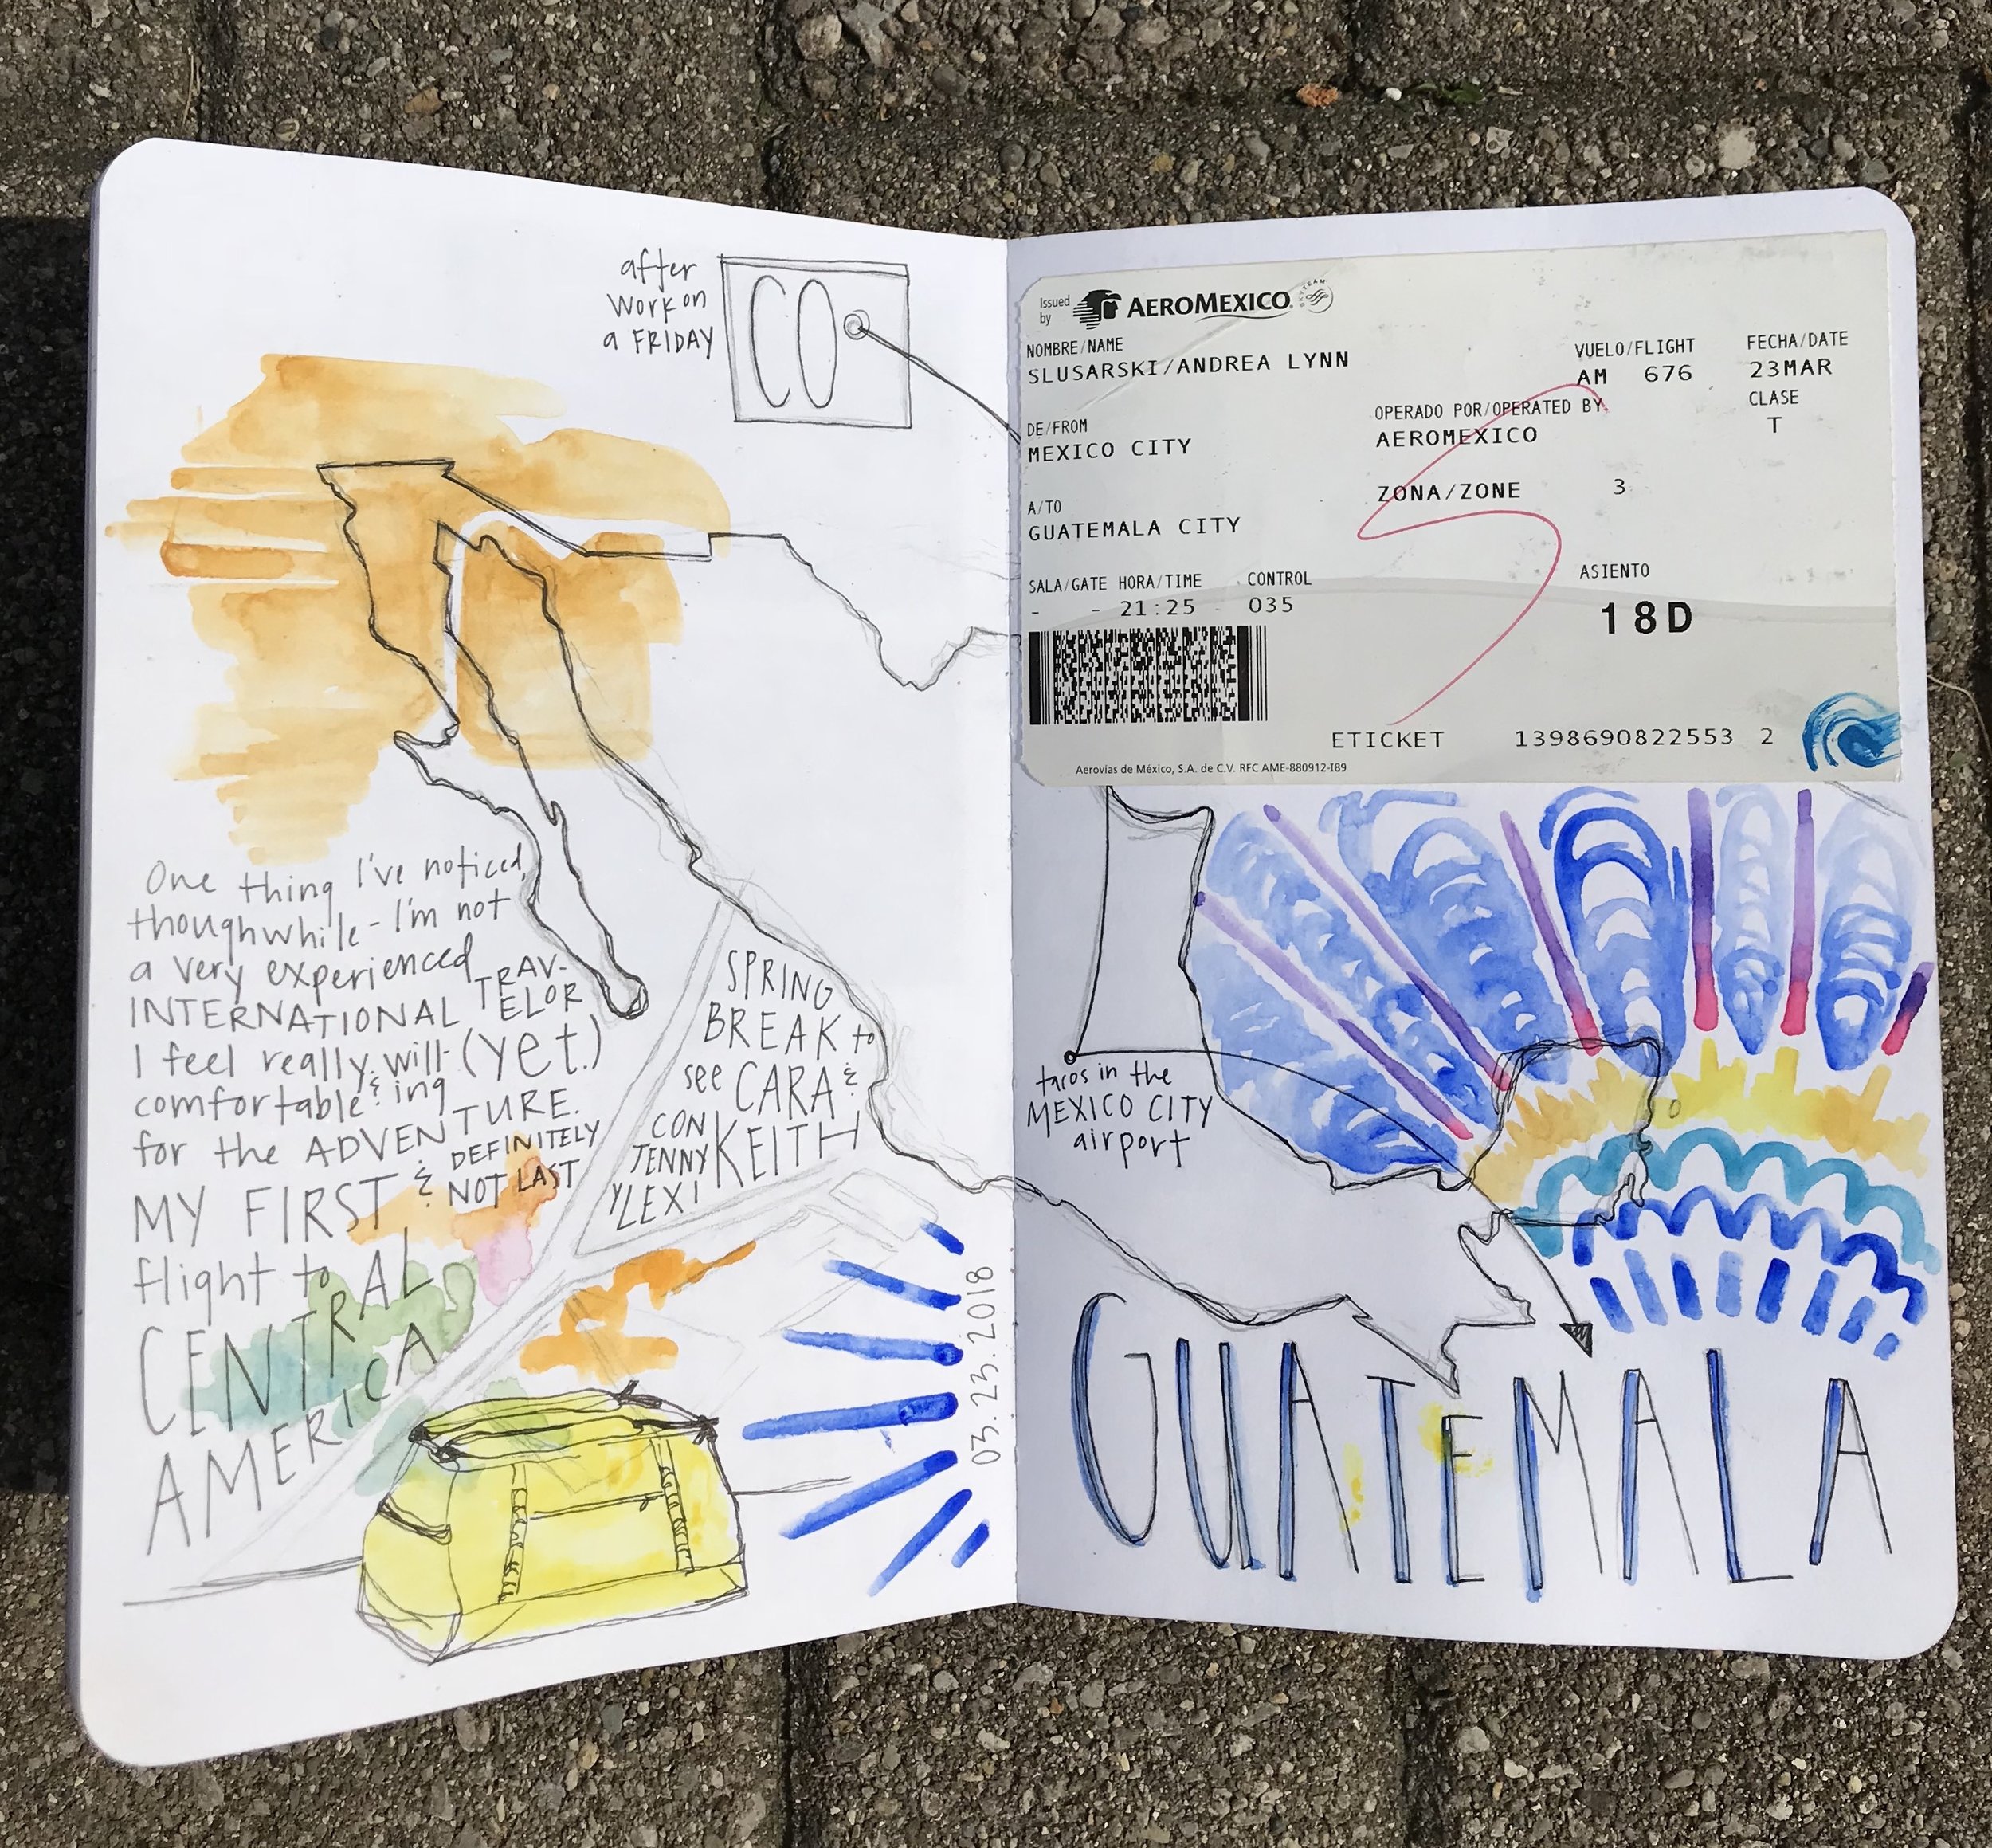 after
Work on
a FRIDAY
CO
One thing I've noticed,
thoughwhile - I'm not
a very experienced
INTERNATIONAL TRAV-
ELOR
I feel really will- (yet.)
comfortable & ing
for the ADVENTURE.
MY FIRST & DEFINITELY
NOT LAST
flight to
CENTRAL
AMERICA
SPRING
BREAK to
see CARA &
KEITH
CON
JENNY
Y LEXI
03.23.2018
Issued
by
AEROMEXICO.
SKYTEAM
NOMBRE/NAME
SLUSARSKI/ANDREA LYNN
VUELO/FLIGHT
AM 676
FECHA/DATE
23MAR
CLASE
T
DE/FROM
MEXICO CITY
OPERADO POR/OPERATED BY
AEROMEXICO
ZONA/ZONE 3
A/TO
GUATEMALA CITY
SALA/GATE HORA/TIME CONTROL
- - 21:25 035
ASIENTO
18D
ETICKET 1398690822553 2
Aerovías de México, S.A. de C.V. RFC AME-880912-I89
tacos in the
MEXICO CITY
airport
GUATEMALA